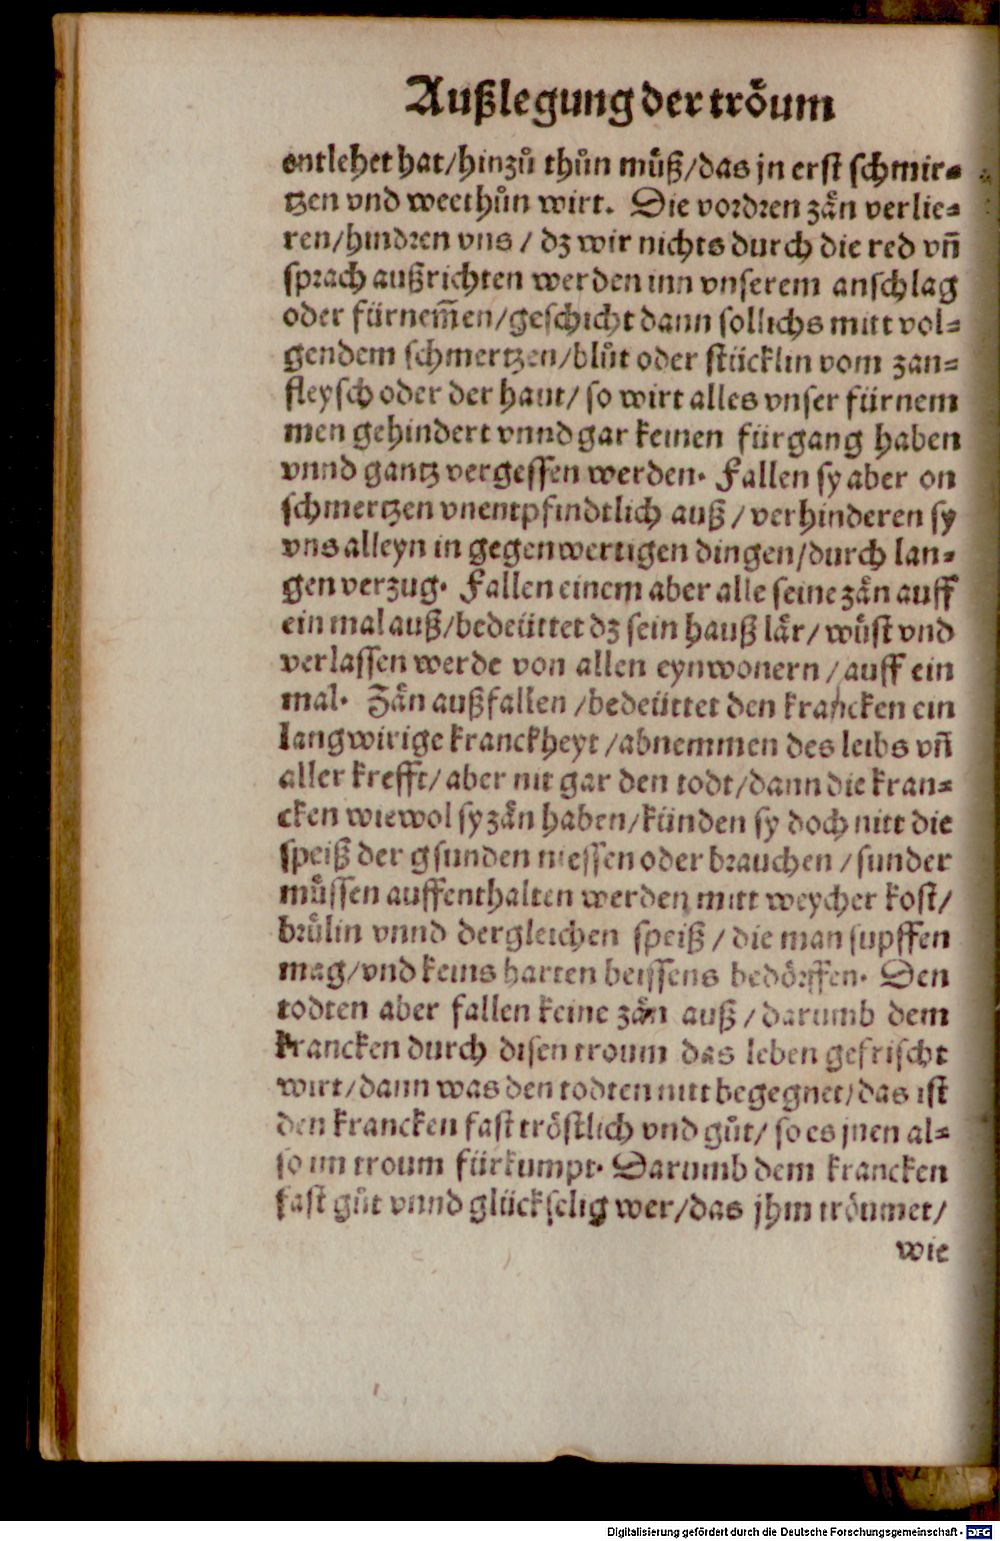 Außlegung der troͤum
entlehet hat/hinzuͦ thuͦn muͤß/das jn erst schmir-
tzen vnd weethuͦn wirt. Die vordren zaͤn verlie-
ren/hindren vns / dz wir nichts durch die red vn̄
sprach außrichten werden inn vnserem anschlag
oder fürnem̄en/geschicht dann sollichs mitt vol-
gendem schmertzen/bluͦt oder stücklin vom zan-
fleysch oder der haut/ so wirt alles vnser fürnem
men gehindert vnnd gar keinen fürgang haben
vnnd gantz vergessen werden. Fallen sy aber on
schmertzen vnentpfindtlich auß / verhinderen sy
vns alleyn in gegenwertigen dingen/durch lan-
gen verzug. Fallen einem aber alle seine zaͤn auff
ein mal auß/bedeüttet dz sein hauß laͤr/ wuͤst vnd
verlassen werde von allen eynwonern / auff ein
mal. Zaͤn außfallen /bedeüttet den krancken ein
langwirige kranckheyt /abnemmen des leibs vn̄
aller krefft/ aber nit gar den todt/dann die kran-
cken wiewol sy zaͤn haben/künden sy doch nitt die
speiß der gsunden niessen oder brauchen / sunder
muͤssen auffenthalten werden mitt weycher kost/
bruͤlin vnnd dergleichen speiß / die man supffen
mag/vnd keins harten beissens bedoͤrffen. Den
todten aber fallen keine zaͤn auß / darumb dem
krancken durch disen troum das leben gefrischt
wirt/dann was den todten nitt begegnet/das ist
den krancken fast troͤstlich vnd guͦt/ so es jnen al-
so im troum fürkumpt. Darumb dem krancken
fast guͦt vnnd glückselig wer/das jhm troͤumet/
wie
Digitalisierung gefördert durch die Deutsche Forschungsgemeinschaft - DFG